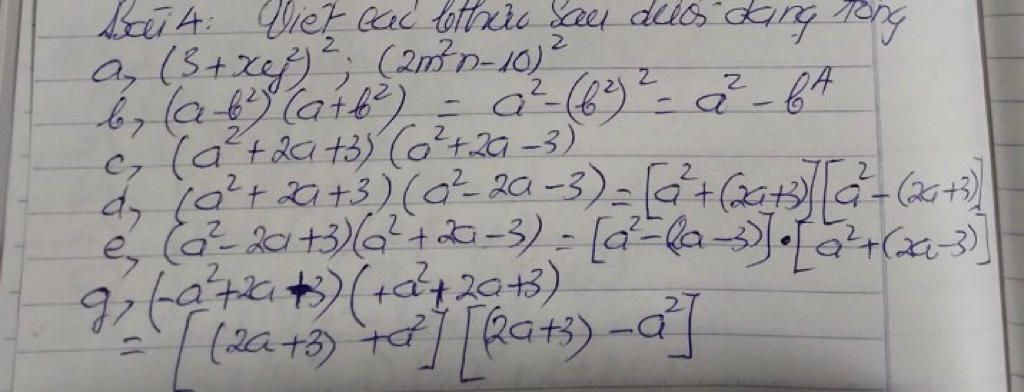 Bài 4: Viết các bthức sau dưới dạng tổng
a, (3+xy²)²; (2m²n-10)²
b, (a-b²)(a+b²) = a²-(b²)² = a² - b⁴
c, (a²+2a+3)(a²+2a-3)
d, (a²+2a+3)(a²-2a-3) = [a²+(2a+3)][a²-(2a+3)]
e, (a²-2a+3)(a²+2a-3) = [a²-(2a-3)]·[a²+(2a-3)]
g, (-a²+2a+3)(+a²+2a+3)
= [(2a+3)+a²][(2a+3)-a²]